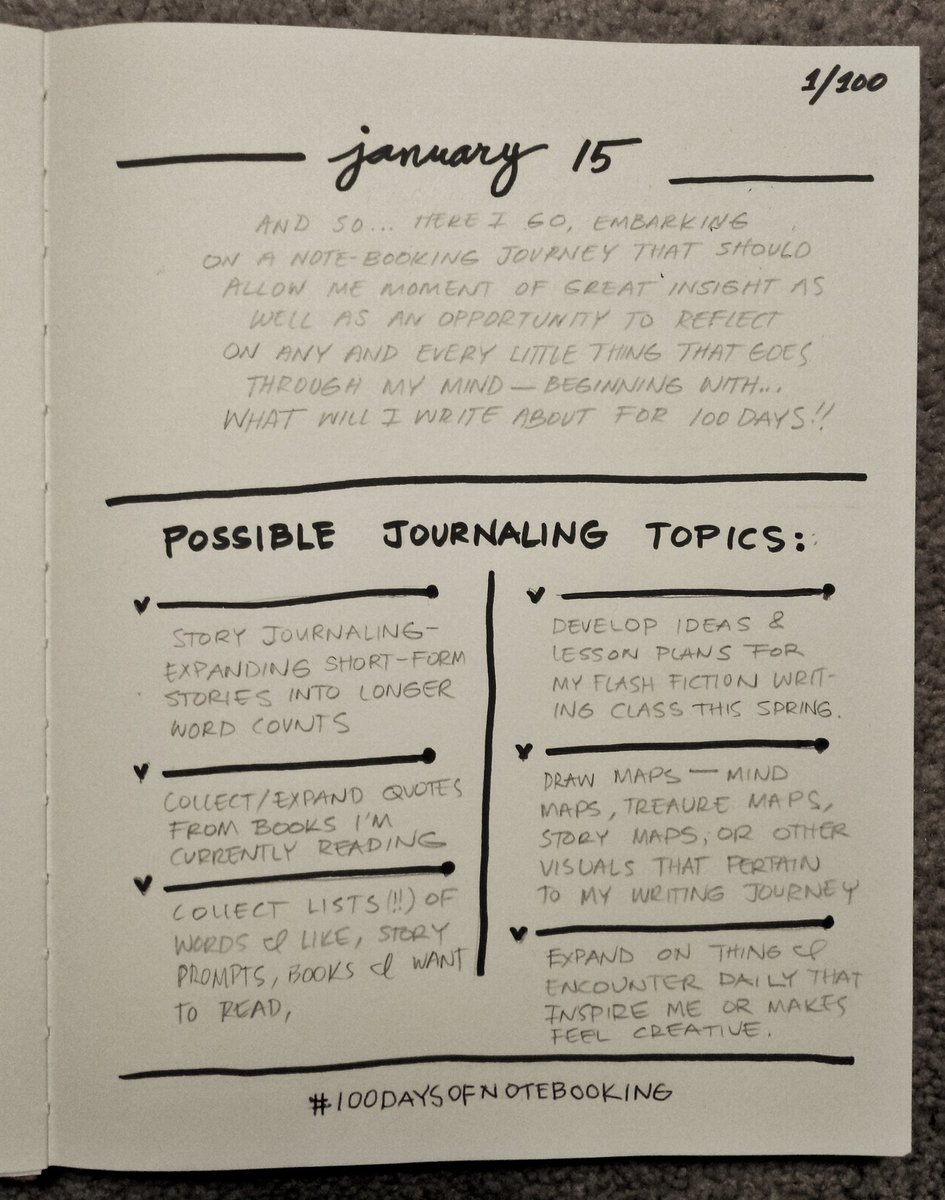 1/100
january 15
AND SO... HERE I GO, EMBARKING
ON A NOTE-BOOKING JOURNEY THAT SHOULD
ALLOW ME MOMENT OF GREAT INSIGHT AS
WELL AS AN OPPORTUNITY TO REFLECT
ON ANY AND EVERY LITTLE THING THAT GOES
THROUGH MY MIND — BEGINNING WITH...
WHAT WILL I WRITE ABOUT FOR 100 DAYS!!
POSSIBLE JOURNALING TOPICS:
STORY JOURNALING-
EXPANDING SHORT-FORM
STORIES INTO LONGER
WORD COUNTS
COLLECT/EXPAND QUOTES
FROM BOOKS I'M
CURRENTLY READING
COLLECT LISTS(!!) OF
WORDS I LIKE, STORY
PROMPTS, BOOKS I WANT
TO READ,
DEVELOP IDEAS &
LESSON PLANS FOR
MY FLASH FICTION WRIT-
ING CLASS THIS SPRING.
DRAW MAPS — MIND
MAPS, TREAURE MAPS,
STORY MAPS, OR OTHER
VISUALS THAT PERTAIN
TO MY WRITING JOURNEY
EXPAND ON THING I
ENCOUNTER DAILY THAT
INSPIRE ME OR MAKES
FEEL CREATIVE.
#100DAYSOFNOTEBOOKING